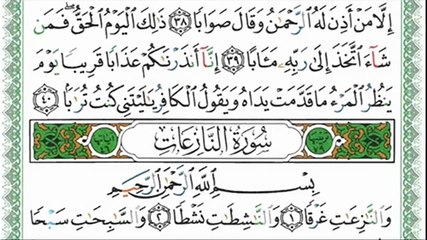 إِلَّا مَنْ أَذِنَ لَهُ الرَّحْمَٰنُ وَقَالَ صَوَابًا ﴿٣٨﴾ ذَٰلِكَ الْيَوْمُ الْحَقُّ ۖ فَمَن
شَاءَ اتَّخَذَ إِلَىٰ رَبِّهِ مَـَٔابًا ﴿٣٩﴾ إِنَّا أَنذَرْنَاكُمْ عَذَابًا قَرِيبًا يَوْمَ
يَنظُرُ الْمَرْءُ مَا قَدَّمَتْ يَدَاهُ وَيَقُولُ الْكَافِرُ يَا لَيْتَنِي كُنتُ تُرَابًا ﴿٤٠﴾
سُورَةُ النَّازِعَاتِ
بِسْمِ اللَّهِ الرَّحْمَٰنِ الرَّحِيمِ
وَالنَّازِعَاتِ غَرْقًا ﴿١﴾ وَالنَّاشِطَاتِ نَشْطًا ﴿٢﴾ وَالسَّابِحَاتِ سَبْحًا